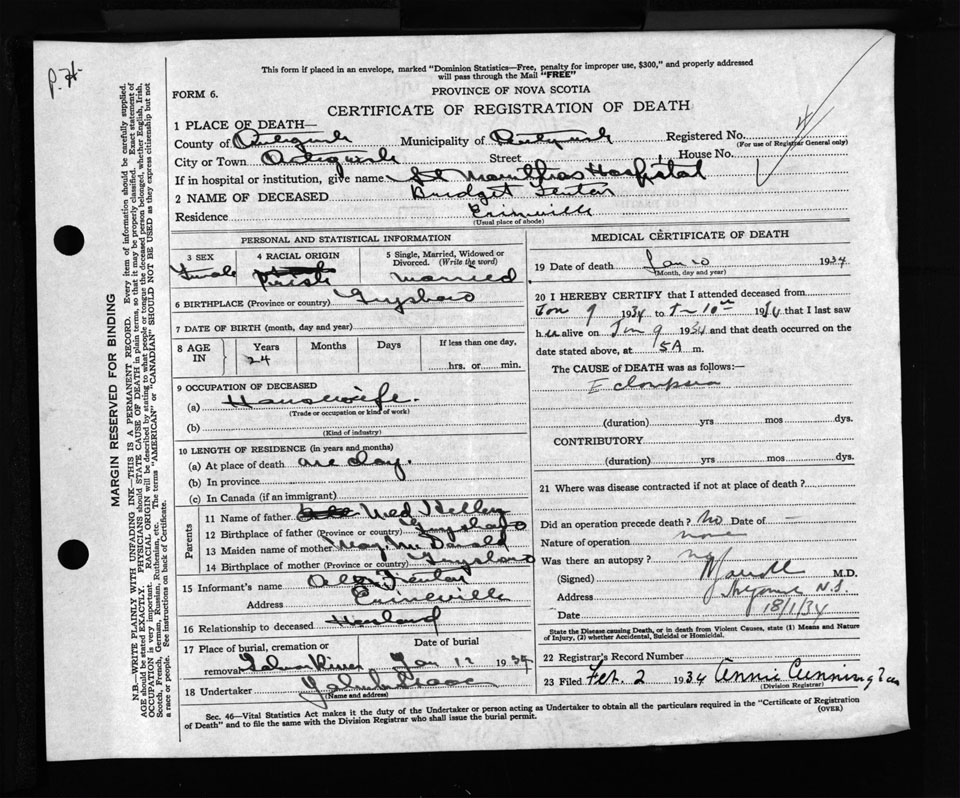 P. 76
This form if placed in an envelope, marked "Dominion Statistics—Free, penalty for improper use, $300," and properly addressed
will pass through the Mail "FREE"
FORM 6.
PROVINCE OF NOVA SCOTIA
CERTIFICATE OF REGISTRATION OF DEATH
1 PLACE OF DEATH—
County of Antigonish Municipality of Antigonish Registered No.
(For use of Registrar General only)
City or Town Antigonish Street House No.
If in hospital or institution, give name St Marthas Hospital
2 NAME OF DECEASED Bridget Fenton
Residence Erinville
(Usual place of abode)
PERSONAL AND STATISTICAL INFORMATION
3 SEX Female
4 RACIAL ORIGIN Irish
5 Single, Married, Widowed or Divorced. (Write the word) Married
6 BIRTHPLACE (Province or country) Guysboro
7 DATE OF BIRTH (month, day and year)
8 AGE IN Years 24 Months Days If less than one day, hrs. or min.
9 OCCUPATION OF DECEASED
(a) Housewife.
(Trade or occupation or kind of work)
(b)
(Kind of industry)
10 LENGTH OF RESIDENCE (in years and months)
(a) At place of death one day.
(b) In province
(c) In Canada (if an immigrant)
Parents
11 Name of father Ned Kelley
12 Birthplace of father (Province or country) Guysboro
13 Maiden name of mother May McDonald
14 Birthplace of mother (Province or country) Guysboro
15 Informant's name Fenton
Address Erinville
16 Relationship to deceased Husband
17 Place of burial, cremation or removal Salmon River Date of burial Jan 12 1934
18 Undertaker
(Name and address)
MEDICAL CERTIFICATE OF DEATH
19 Date of death Jan 10 1934
(Month, day and year)
20 I HEREBY CERTIFY that I attended deceased from
Jan 9 1934 to Jan 10th 1934 that I last saw
her alive on Jan 9 1934 and that death occurred on the
date stated above, at 5A m.
The CAUSE of DEATH was as follows:—
Eclampsia
(duration) yrs mos dys.
CONTRIBUTORY
(duration) yrs mos dys.
21 Where was disease contracted if not at place of death?
Did an operation precede death? No Date of —
Nature of operation none
Was there an autopsy? no
(Signed) M.D.
Address N.S.
Date 18/1/34
State the Disease causing Death, or in death from Violent Causes, state (1) Means and Nature
of Injury, (2) whether Accidental, Suicidal or Homicidal.
22 Registrar's Record Number
23 Filed Feb. 2 1934 Annie Cunningham
(Division Registrar)
Sec. 46—Vital Statistics Act makes it the duty of Undertaker or person acting as Undertaker to obtain all the particulars required in the "Certificate of Registration
of Death" and to file the same with the Division Registrar who shall issue the burial permit.
(OVER)
MARGIN RESERVED FOR BINDING
N.B.—WRITE PLAINLY WITH UNFADING INK—THIS IS A PERMANENT RECORD. Every item of information should be carefully supplied.
AGE should be stated EXACTLY. PHYSICIANS should STATE CAUSE OF DEATH in plain terms, so that it may be properly classified. Exact statement of
OCCUPATION is very important. RACIAL ORIGIN will be described by stating to what people or tongue the deceased person belonged, whether English, Irish,
Scotch, French, German, Russian, Ruthenian, etc. The terms "AMERICAN" or "CANADIAN" SHOULD NOT BE USED as they express citizenship but not
a race or people. See instructions on back of Certificate.